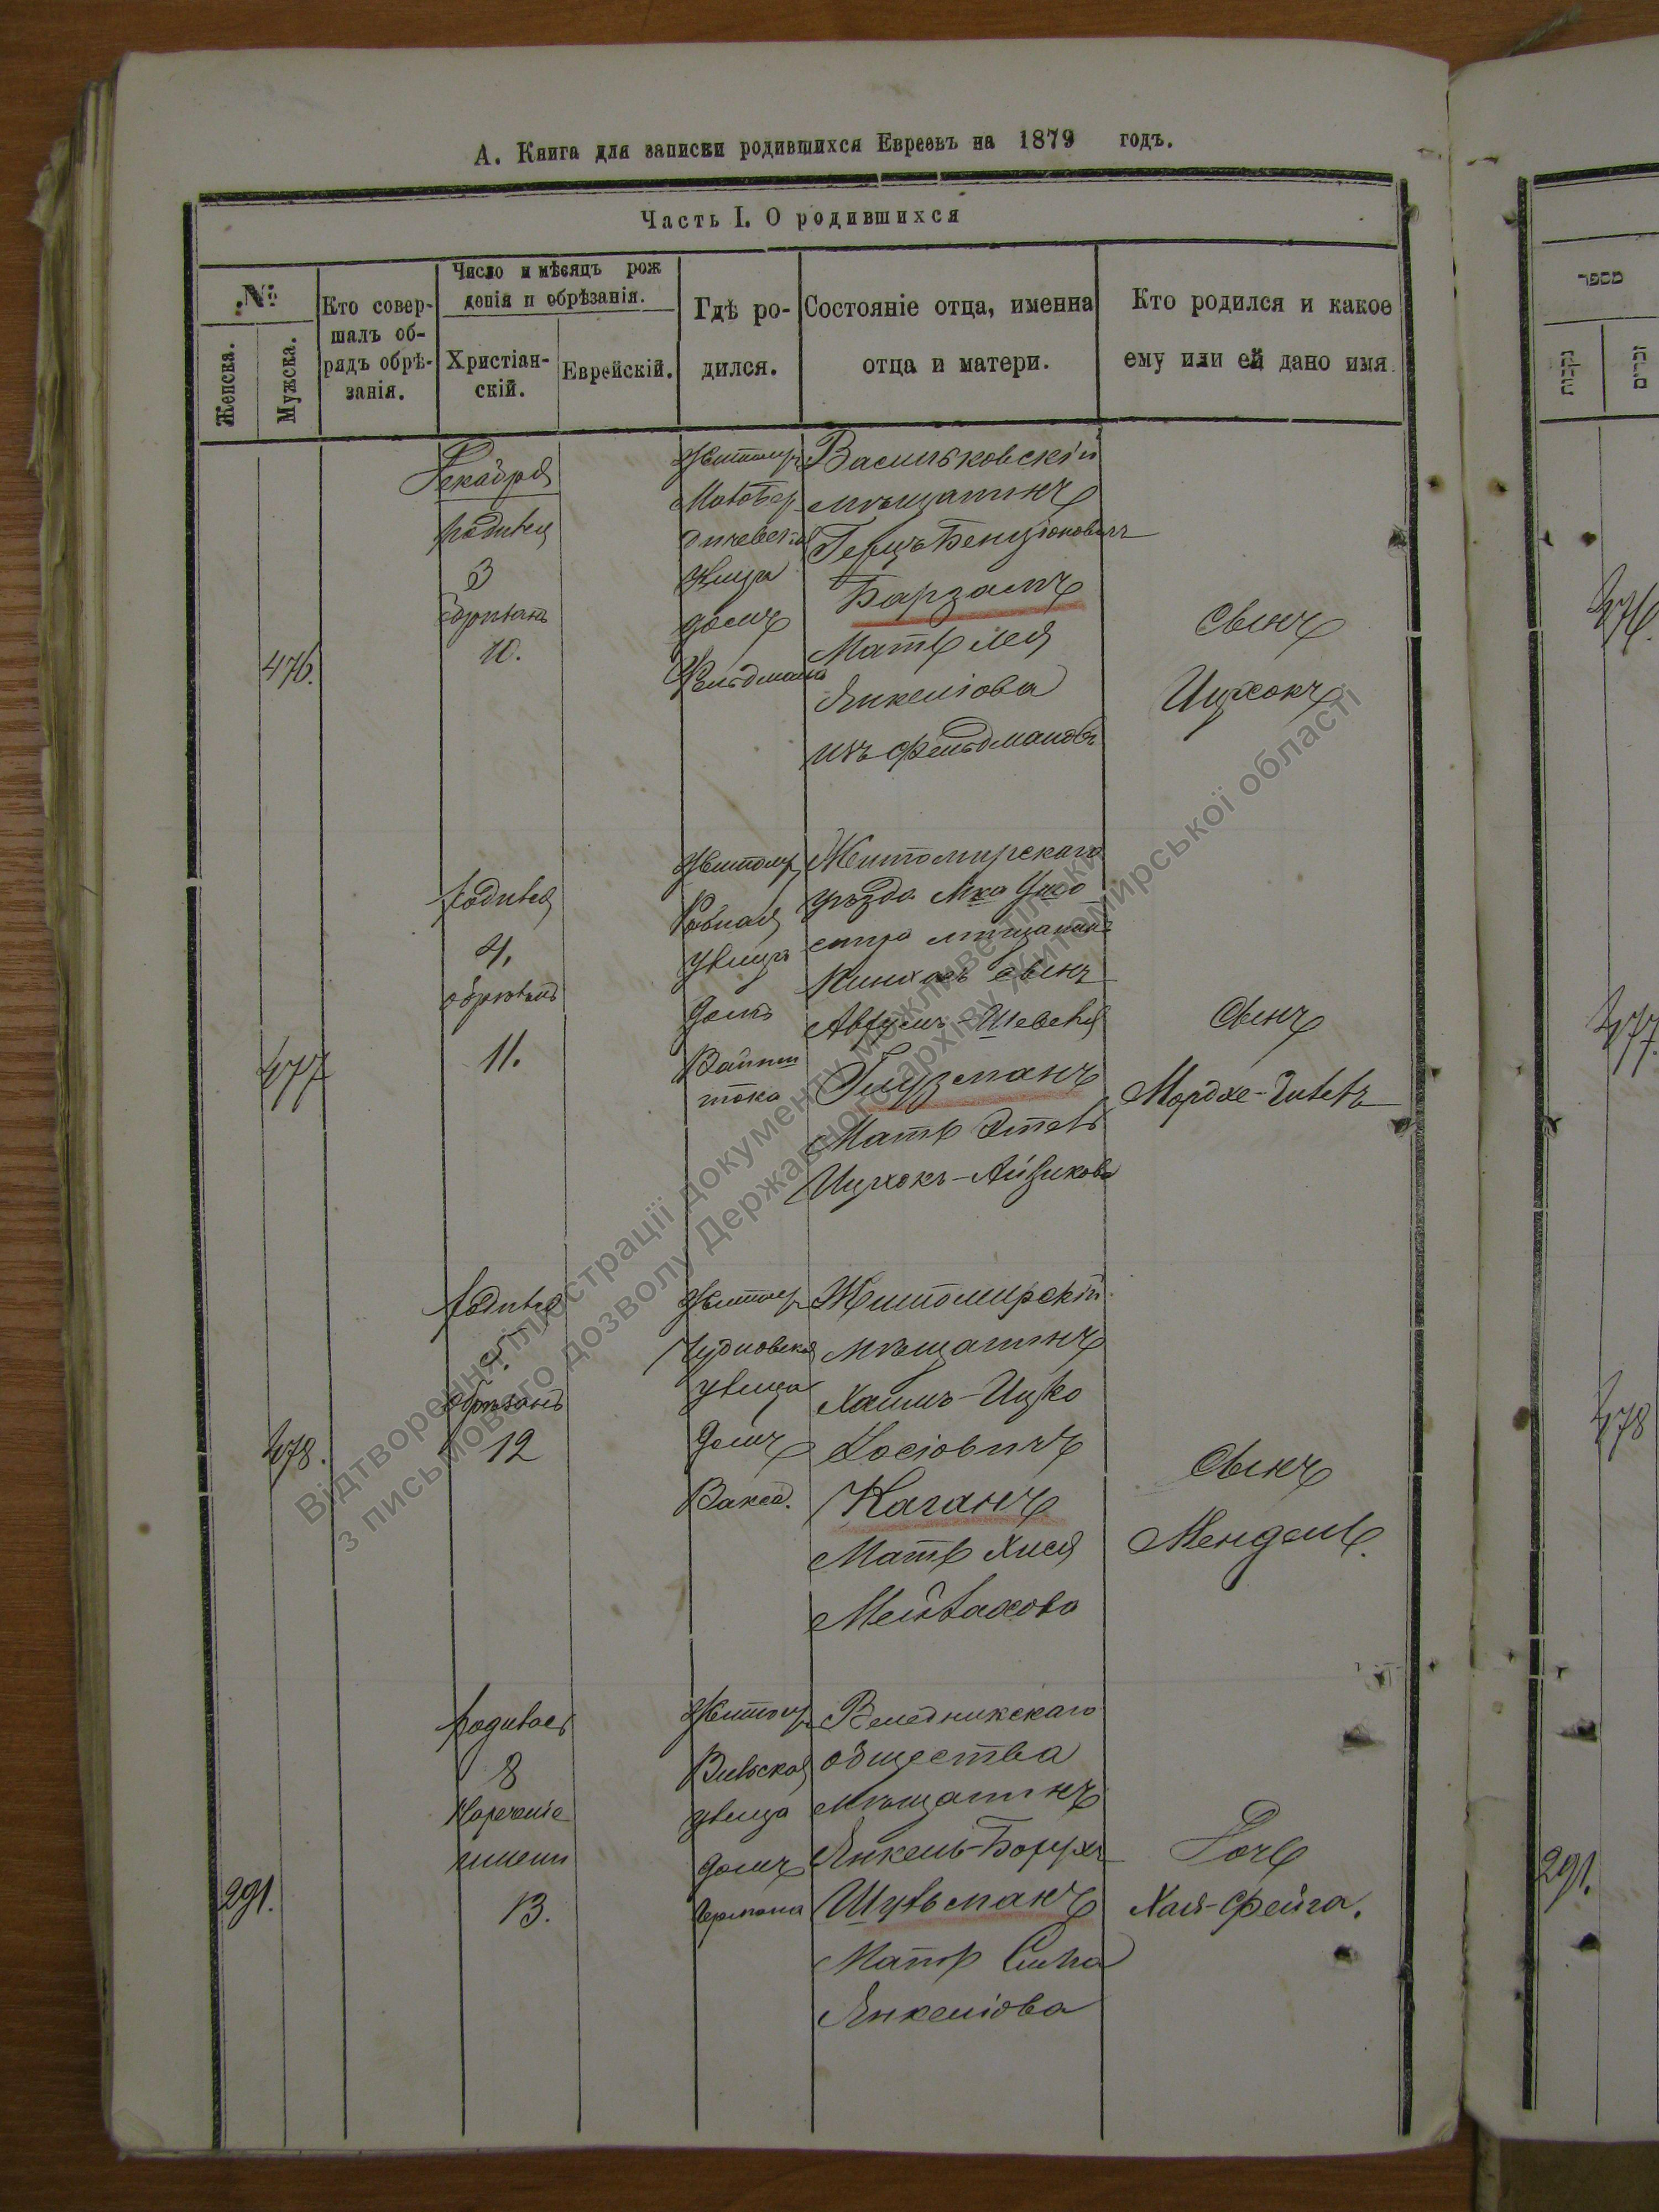 А. Книга для записки родившихся Евреевъ на 1879 годъ.
Часть I. О родившихся
№
Женска.
Мужска.
Кто совер-
шалъ об-
рядъ обрѣ-
занія.
Число и мѣсяцъ рож
денія и обрѣзанія.
Христіан-
скій.
Еврейскій.
Гдѣ ро-
дился.
Состояніе отца, именна
отца и матери.
Кто родился и какое
ему или ей дано имя.
476.
Декабря
родился
3
обрѣзанъ
10.
Житомир
Малобер
дичевская
улица
домъ
Фельдмана
Васильковскій
мѣщанинъ
Гершъ Бенціоновичъ
Барзамъ
Мать Лея
Янкеліова
изъ Фельдмановъ
Сынъ
Ицхокъ
477
родился
4,
обрѣзанъ
11.
Житомир
улица
домъ
Вайнш
тока
Житомирскаго
уѣзда М-ка Ушо
мѣщанинъ
сынъ
Глузманъ
Мать Этель
Ицхокъ-Айзикова
Сынъ
Мордхе-
478.
родился
5.
обрѣзанъ
12
Житомир
Чудновская
улица
домъ
Вакса.
Житомирскій
мѣщанинъ
Хаимъ-Ицко
Іосіовичъ
Каганъ
Мать Хися
Мейлахова
Сынъ
Мендель.
291.
родилась
8
Нареченіе
имени
13.
Житомир
Вильская
улица
домъ
Германа
Веледникскаго
общества
мѣщанинъ
Янкель-Борухъ
Шульманъ
Мать Сима
Янкеліова
Дочь
Хая-Фейга.
מספר
נקבות
זכרים
476.
477.
478
291.
Відтворення ілюстрації документу можливе тільки
з письмового дозволу Державного архіву Житомирської області